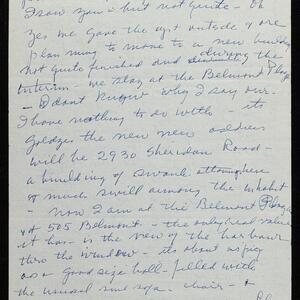 I saw you & but not quite - Oh
yes we gave the apt outside & are
planning to move to a new building
not quite finished and during the
interim - we stay at the Belmont Plaza
- I dont know why I say our -
I have nothing to do with - its
the new new address
will be 2930 Sheridan Road -
a building of swank atmosphere
& much swill among the inhabit
- now I am at the Belmont Plaza
at 505 Belmont - the only real value
it has - is the view of the harbour
thru the window - its about as big
as a good size hall - filled with
the usual sofa - chair - &